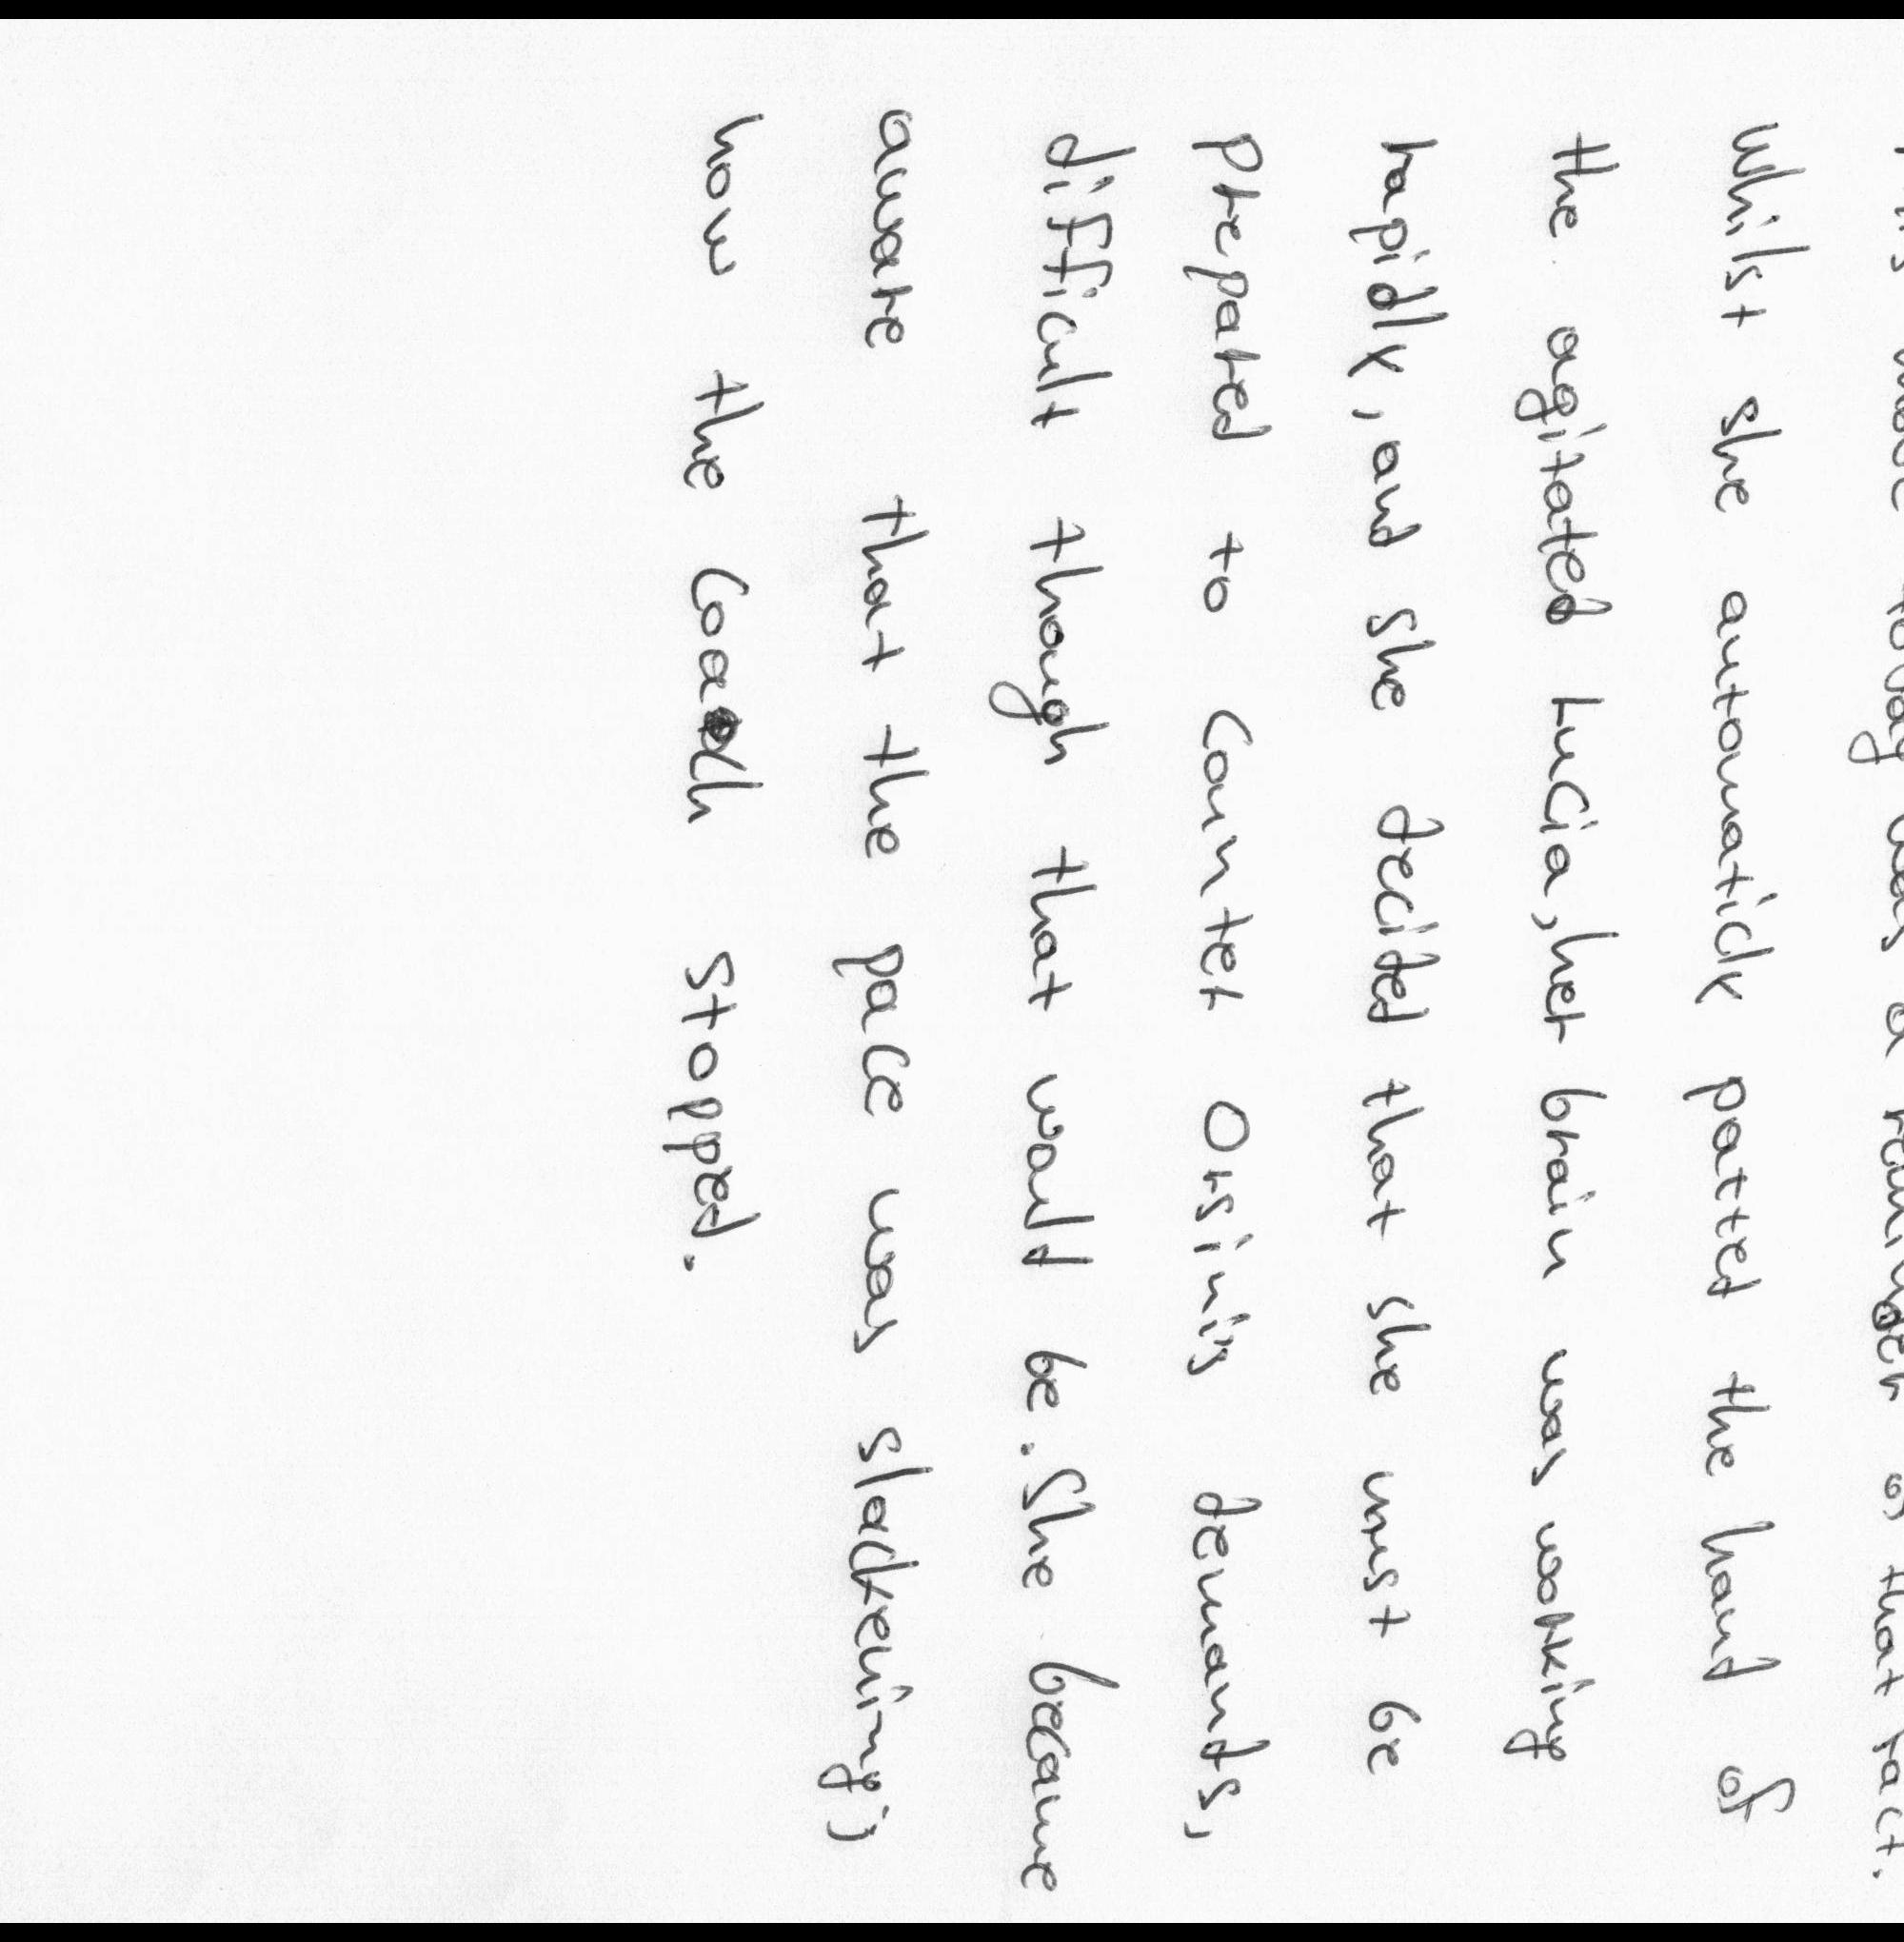 today was a reminder of that fact.
Whilst she automaticly patted the hand of
the agitated Lucia, her brain was working
rapidly, and she decided that she must be
prepared to counter Orsini's demands,
difficult though that would be. She became
aware that the pace was slackening;
how the coach stopped.